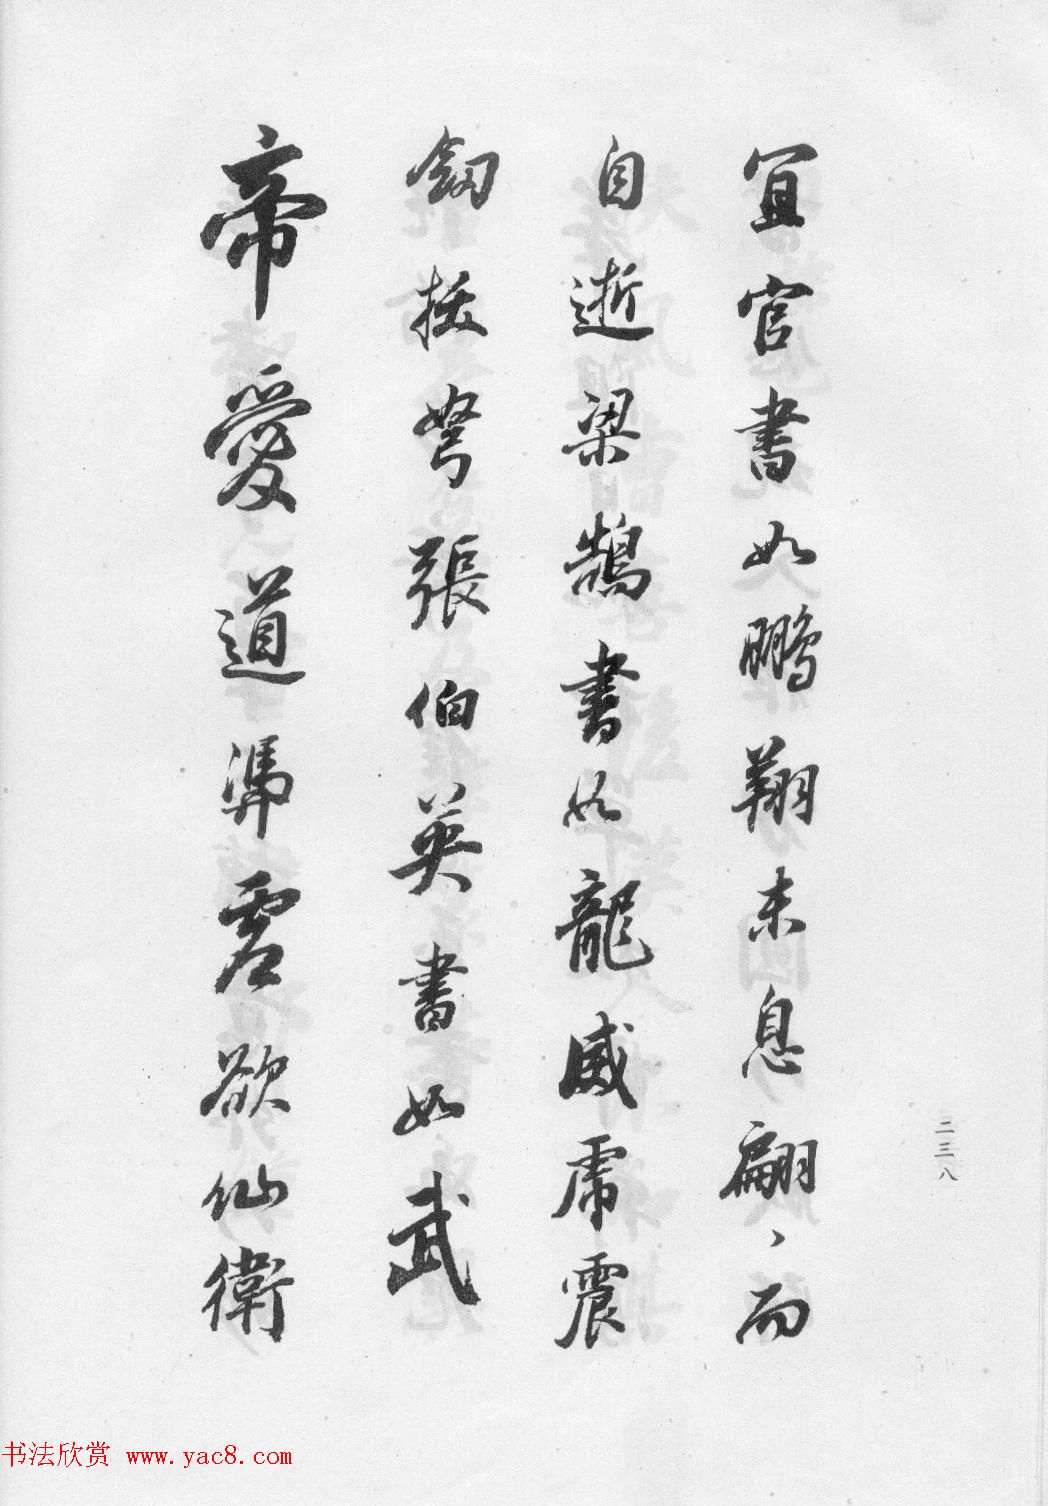 宜官書如鵬翔未息翩、而
自逝梁鵠書如龍威虎震
劔拔弩張伯英書如武
帝愛道馮虛欲仙衛
二三八
书法欣赏 www.yac8.com